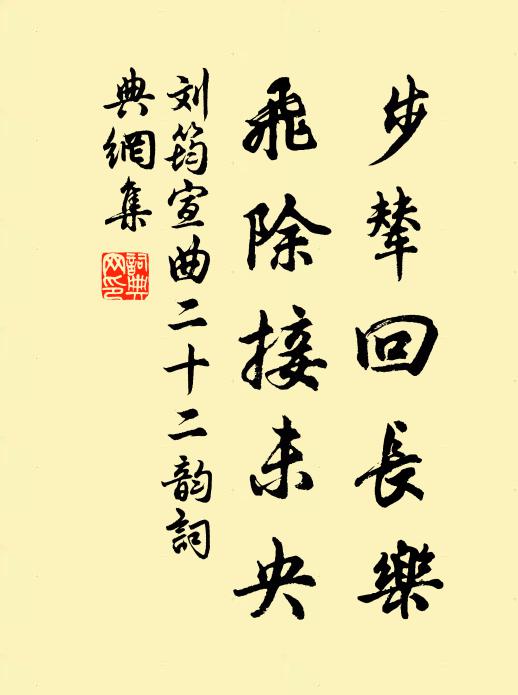 步輦回長樂
飛除接未央
刘筠宣曲二十二韵詞
典網集
詞典
网印